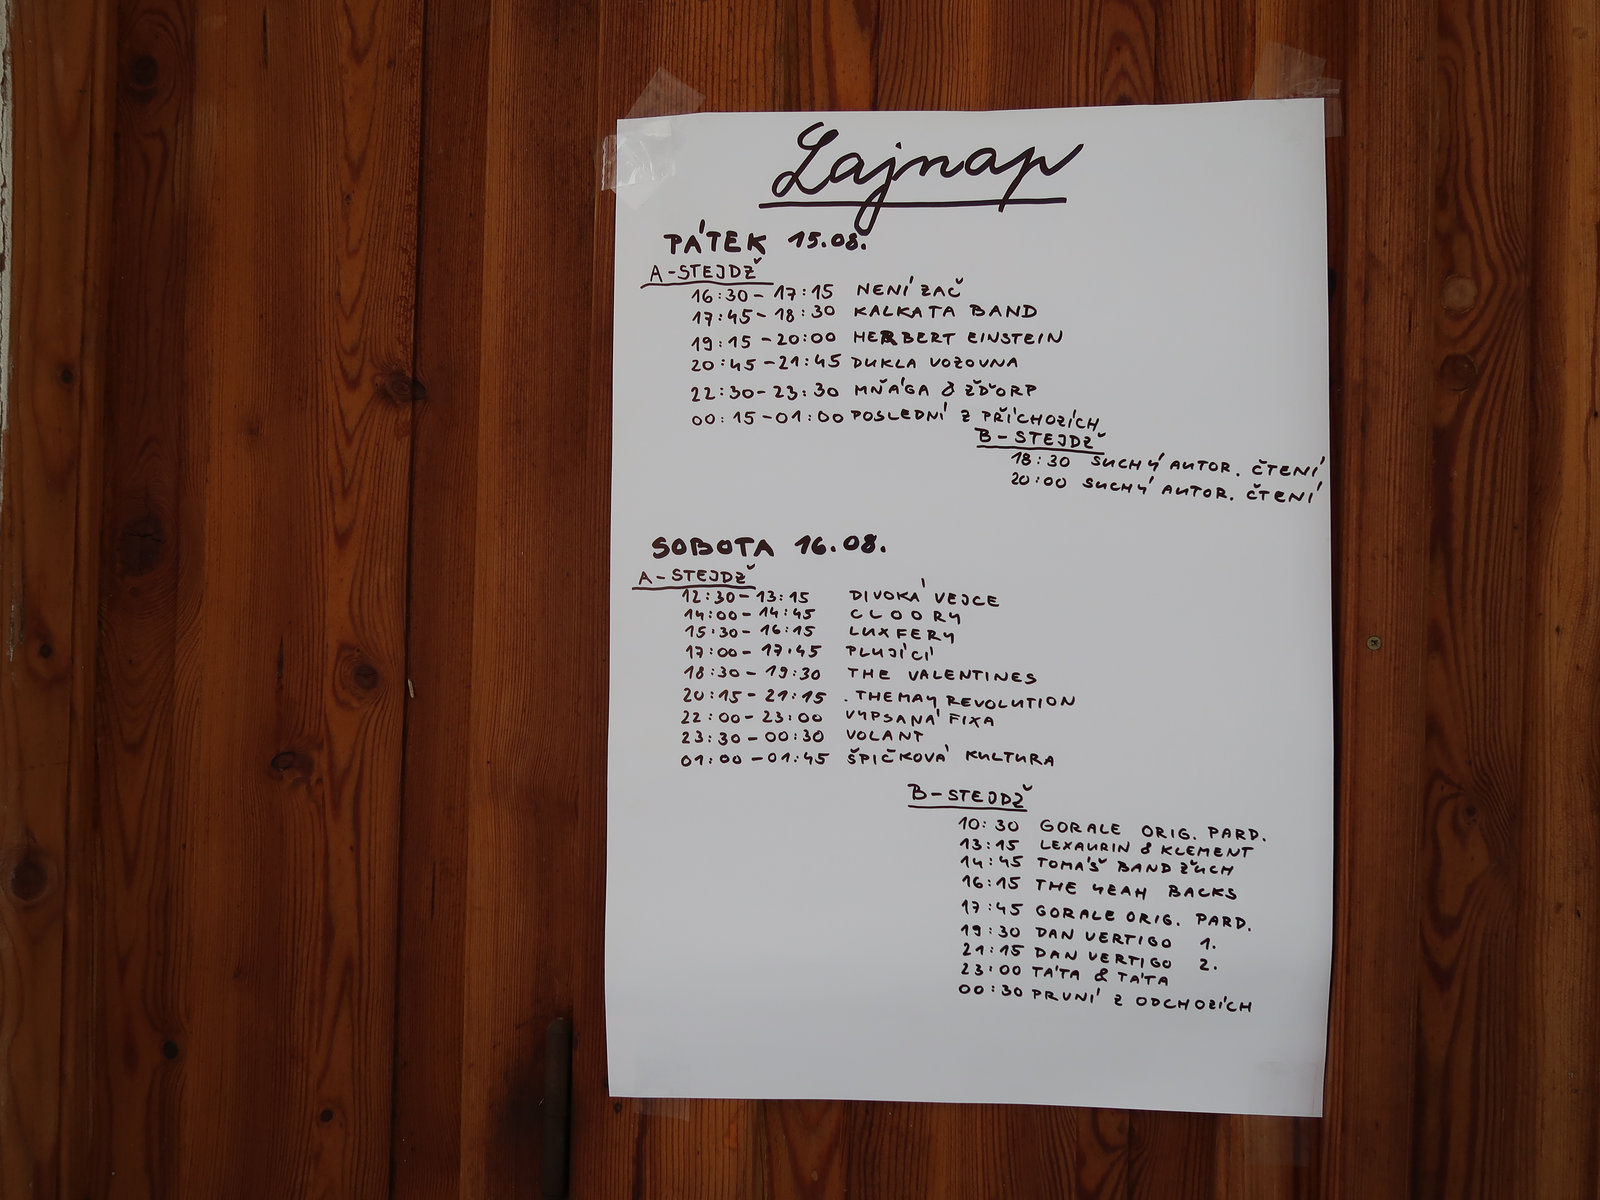 Lajnap
PÁTEK 15.08.
A-STEJDŽ
16:30-17:15 NENÍ ZAČ
17:45-18:30 KALKATA BAND
19:15-20:00 HERBERT EINSTEIN
20:45-21:45 DUKLA VOZOVNA
22:30-23:30 MŇÁGA & ŽĎORP
00:15-01:00 POSLEDNÍ Z PŘÍCHOZÍCH
B-STEJDŽ
18:30 SUCHÝ AUTOR. ČTENÍ
20:00 SUCHÝ AUTOR. ČTENÍ
SOBOTA 16.08.
A-STEJDŽ
12:30-13:15 DIVOKÁ VEJCE
14:00-14:45 CLOORY
15:30-16:15 LUXFERY
17:00-17:45 PLUJÍCÍ
18:30-19:30 THE VALENTINES
20:15-21:15 .THEMAY REVOLUTION
22:00-23:00 VYPSANÁ FIXA
23:30-00:30 VOLANT
01:00-01:45 ŠPIČKOVÁ KULTURA
B-STEJDŽ
10:30 GORALE ORIG. PARD.
13:15 LEXAURIN & KLEMENT
14:45 TOMÁŠ BAND ŽŮCH
16:15 THE YEAH BACKS
17:45 GORALE ORIG. PARD.
19:30 DAN VERTIGO 1.
21:15 DAN VERTIGO 2.
23:00 TÁTA & TÁTA
00:30 PRVNÍ Z ODCHOZÍCH